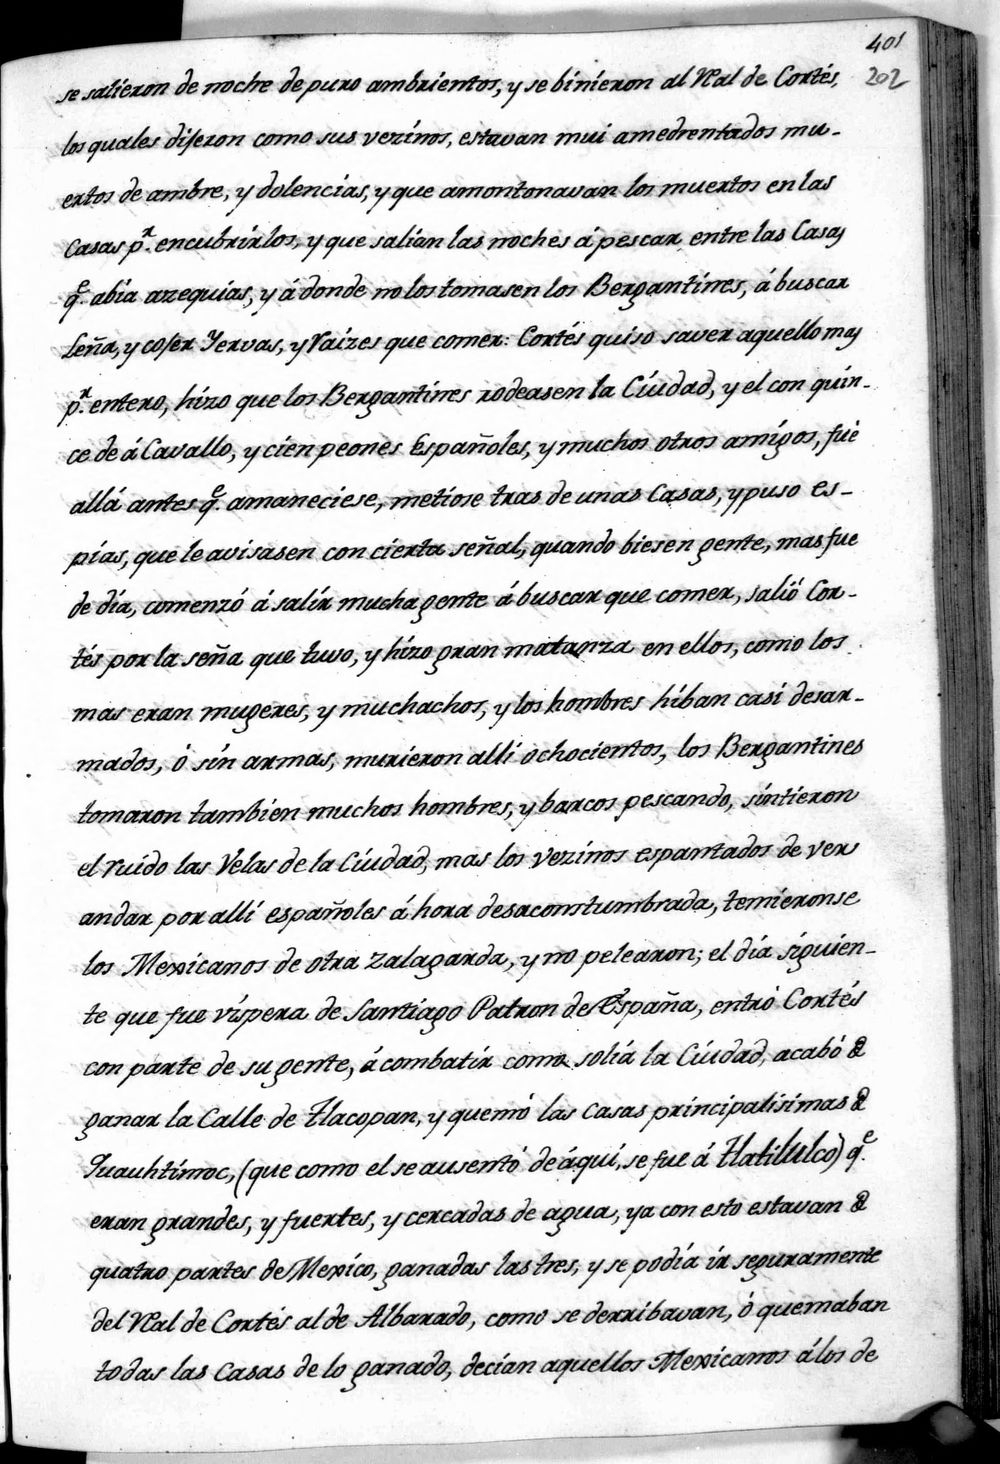 401
202
se salieron de noche de puro ambrientos, y se binieron al Real de Cortés,
los quales dijeron como sus vezinos, estavan mui amedrentados mu-
ertos de ambre, y dolencias, y que amontonavan los muertos en las
Casas pr. encubrirlos, y que salian las noches á pescar entre las Casas
qe. abia azequias, y á donde no los tomasen los Bergantines, á buscar
Leña, y cojer Yervas, y Raizes que comer: Cortés quiso saver aquello mas
pr. entero, hizo que los Bergantines rodeasen la Ciudad, y el con quin-
ce de á Cavallo, y cien peones Españoles, y muchos otros amigos, fué
allá antes qe. amaneciese, metiose tras de unas Casas, y puso es-
pias, que le avisasen con cierta señal, quando biesen gente, mas fue
de dia, comenzó á salir mucha gente á buscar que comer, salió Cor-
tés por la seña que tuvo, y hizo gran matanza en ellos, como los
mas eran mugeres, y muchachos, y los hombres hiban casi desar-
mados, ó sin armas, murieron alli ochocientos, los Bergantines
tomaron tambien muchos hombres, y barcos pescando, sintieron
el ruido las Velas de la Ciudad, mas los vezinos espantados de ver
andar por alli españoles á hora desacostumbrada, temieronse
los Mexicanos de otra zalagarda, y no pelearon; el dia siguien-
te que fue vispera de Santiago Patron de España, entró Cortés
con parte de su gente, á combatir como soliá la Ciudad, acabó de
ganar la Calle de Tlacopan, y quemó las casas principalisimas de
Quauhtimoc, (que como el se ausentó de áqui, se fue á Tlatilulco) qe.
eran grandes, y fuertes, y cercadas de agua, ya con esto estavan de
quatro partes de Mexico, ganadas las tres, y se podia ir seguramente
del Real de Cortés al de Albarado, como se derribavan, ó quemaban
todas las Casas de lo ganado, decian aquellos Mexicanos á los de